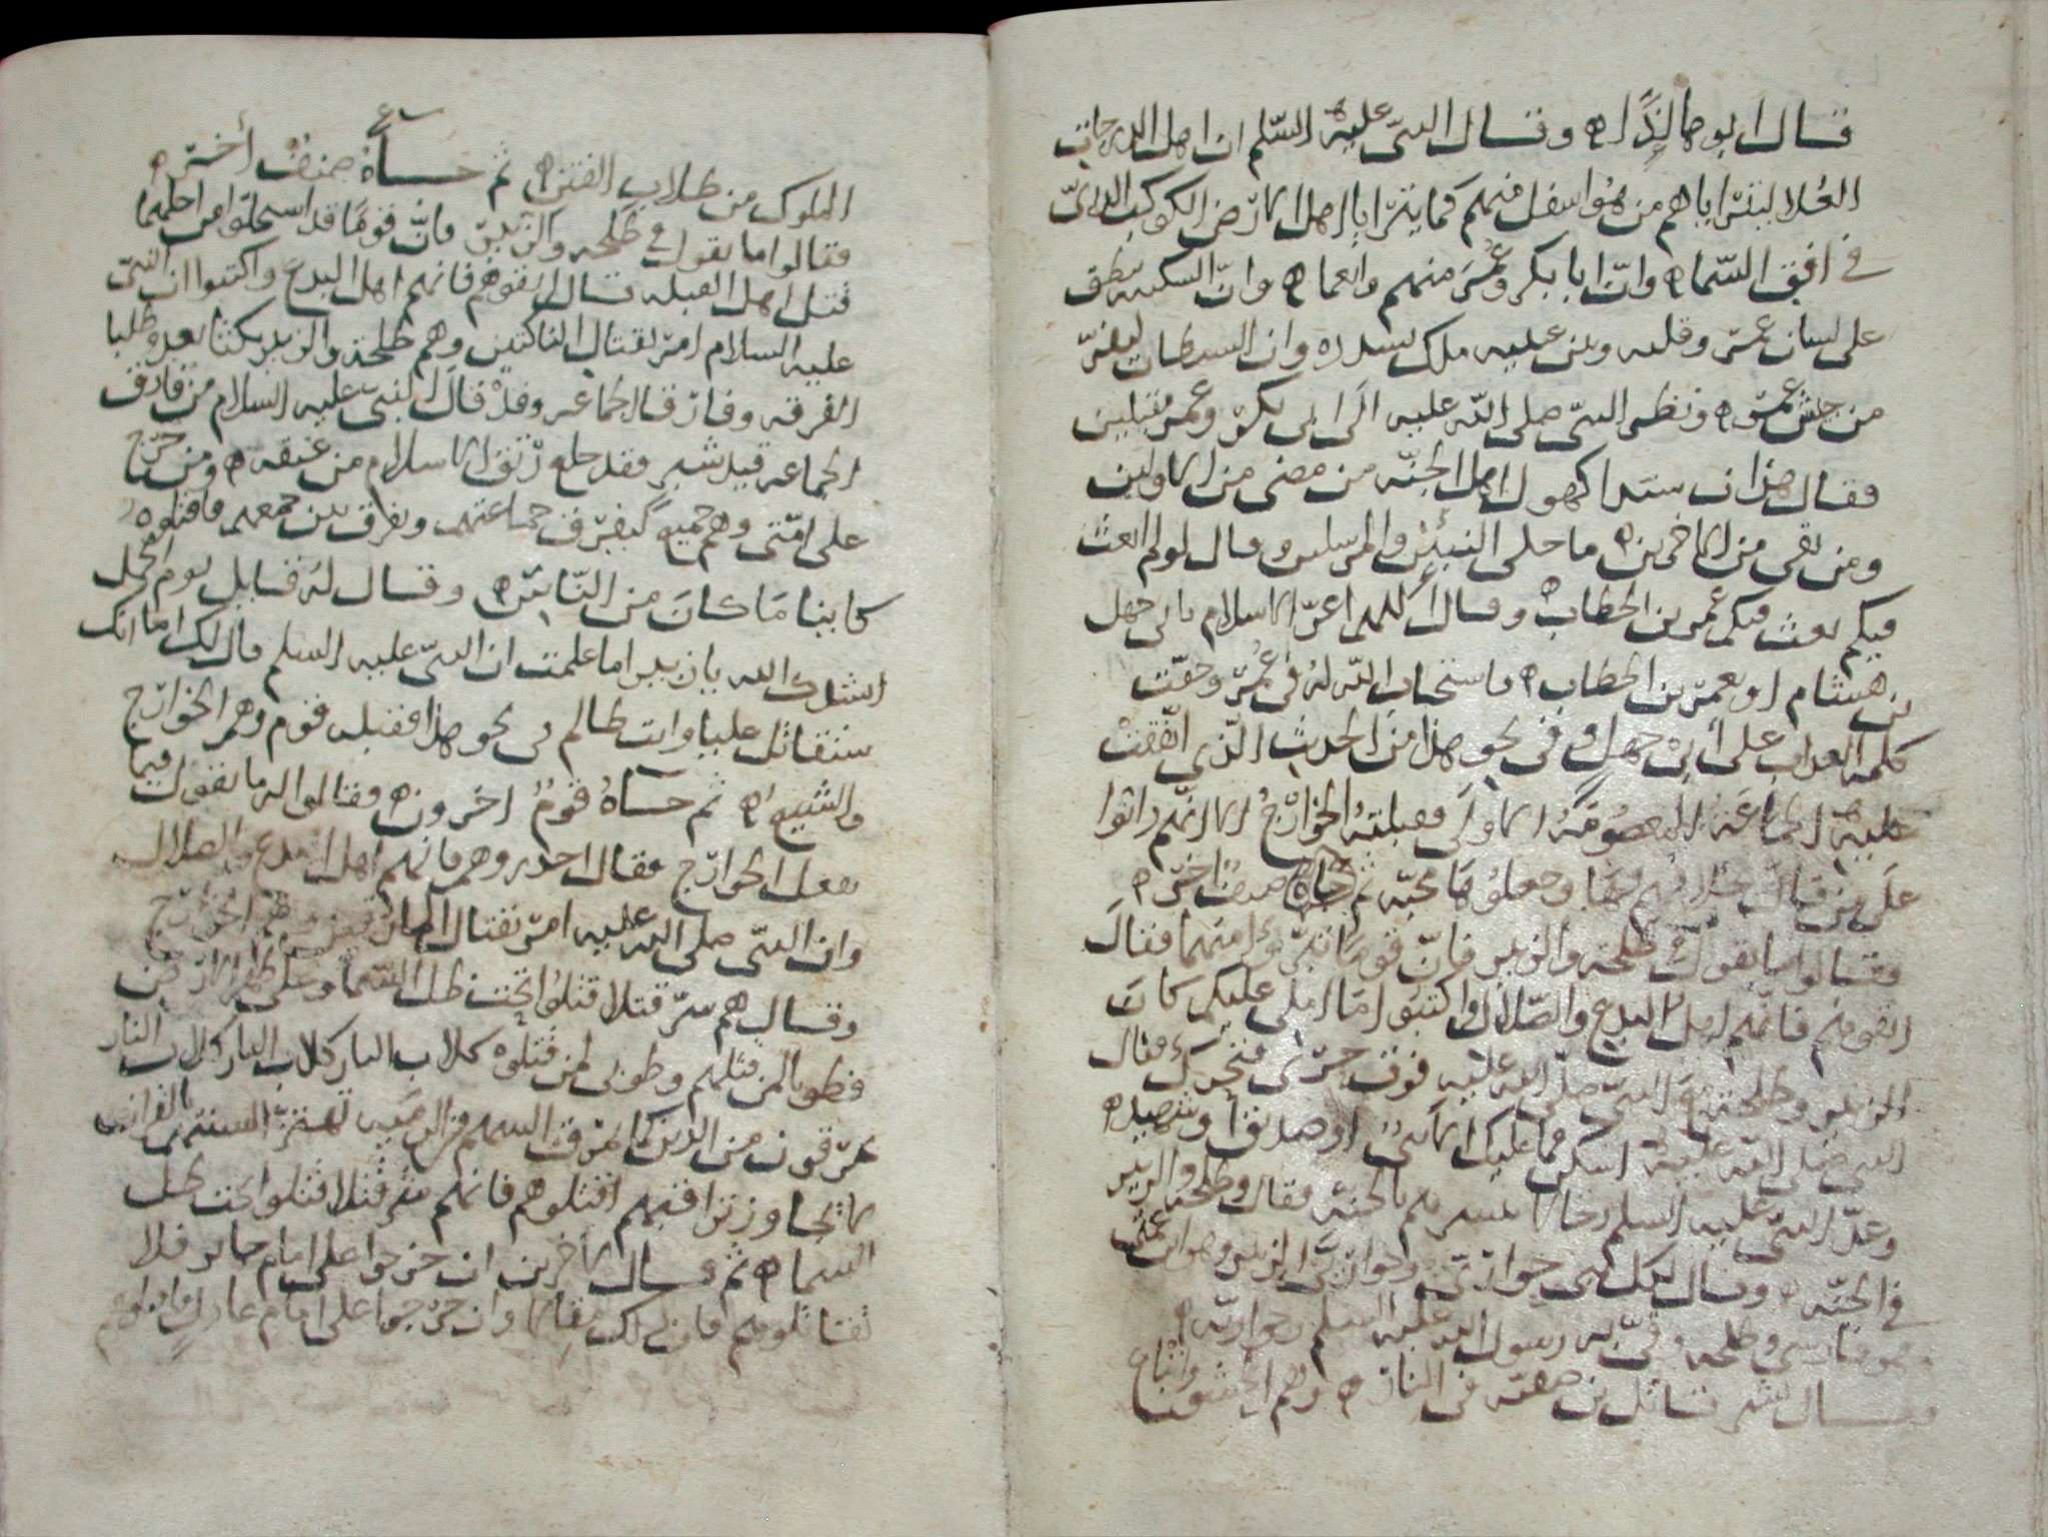 قال ابو ها لنذا ه وقال النبي عليه السلم ان اهل الدرجات
العلا ليتراياهم من هو اسفل منهم كما يترايا اهل الارض الكوكب الدري
في افق السماه وان ابا بكر وعمر منهم وانعما ه وان السكينه ينطق
على لسان عمر وقلبه وبين عينيه ملك يسدده وان الشيطان ليفر
من حس عمر ه ونظر النبي صلى الله عليه الى ابي بكر وعمر مقبلين
فقال هذان سيدا كهول اهل الجنه من مضى من الاولين
ومن بقي من الاخرين ه ما خلى النبيين والمرسلين وقال لو لم ابعث
فيكم بعث فيكم عمر بن الخطاب ه وقال اللهم اعز الاسلام بابي جهل
بن هشام او بعمر بن الخطاب ه فاستجاب الله له في عمر وحقت
كلمه العذاب على ابي جهل وفي نحو هذا من الحديث الذي اتفقت
عليه الجماعة المعصومة الاولى فقبلته الخوارج الا انهم
على من قال وجعلوها محبه ثم جاه صنف اخر ه
وقالوا ما يقول في طلحه والزبير فان قوما تبروا منهما فقال
اتقوهم فانهم اهل البدع والضلال واكتبوا ما املى عليكم كان
الزبير وطلحة مع النبي صلى الله عليه فوق حرى فتحرك فقال
النبي صلى الله عليه اسكن فما عليك الا نبي او صديق او شهيد ه
وعد النبي عليه السلم رجالا بشرهم بالجنه فقال وطلحة والزبير
في الجنه ه وقال لكل نبي حواري وحواري الزبير وهو ابن عمتي
وطلحه وقى به رسول الله عليه السلم
وقال بشر قاتل بن صفيه في النار ه وهم الحشو واتباع
الملوك من طلاب الفتن ه ثم جاه صنف اخر ه
فقالوا ما يقول في طلحه والزبير فان قوما قد استحلوا من اجلهما
قتل اهل القبله قال اتقوهم فانهم اهل البدع واكتبوا ان النبي
عليه السلام امر بقتال الناكثين وهم طلحة والزبير نكثا بعد وطلبا
الفرقه وفارقا الجماعه وقد قال النبي عليه السلام من فارق
الجماعه قيد شبر فقد خلع ربق الاسلام من عنقه ه ومن خرج
على امتي وهم جميع ليفرق جماعتهم ويفرق بين جمعهم فاقتلوه
كاينا ما كان من الناس ه وقال له قايل يوم الجمل
انشدك الله يا زبير اما علمت ان النبي عليه السلم قال لك اما انك
ستقاتل عليا وانت ظالم في نحو هذا فقبله قوم وهم الخوارج
والشيع ه ثم جاه قوم اخرون ه فقالوا له ما تقول فيما
يفعل الخوارج فقال احذروهم فانهم اهل البدع والضلال
وان النبي صلى الله عليه امر بقتال المارقين وهم الخوارج
وقال هم شر قتلا قتلوا تحت ظل السما وعلى ظهر الارض
فطوبا لمن قتلهم وطوبى لمن قتلوه كلاب النار كلاب النار كلاب النار
يمرقون من الدين كما يمرق السهم من الرميه تهتز السنتهم بالقران
لا تجاوز تراقيهم اقتلوهم فانهم شر قتلا قتلوا تحت ظل
السماه ثم قال لاخرين ان خرجوا على امام جاير فلا
تقاتلوهم فان لذلك مقالا وان خرجوا على امام عادل